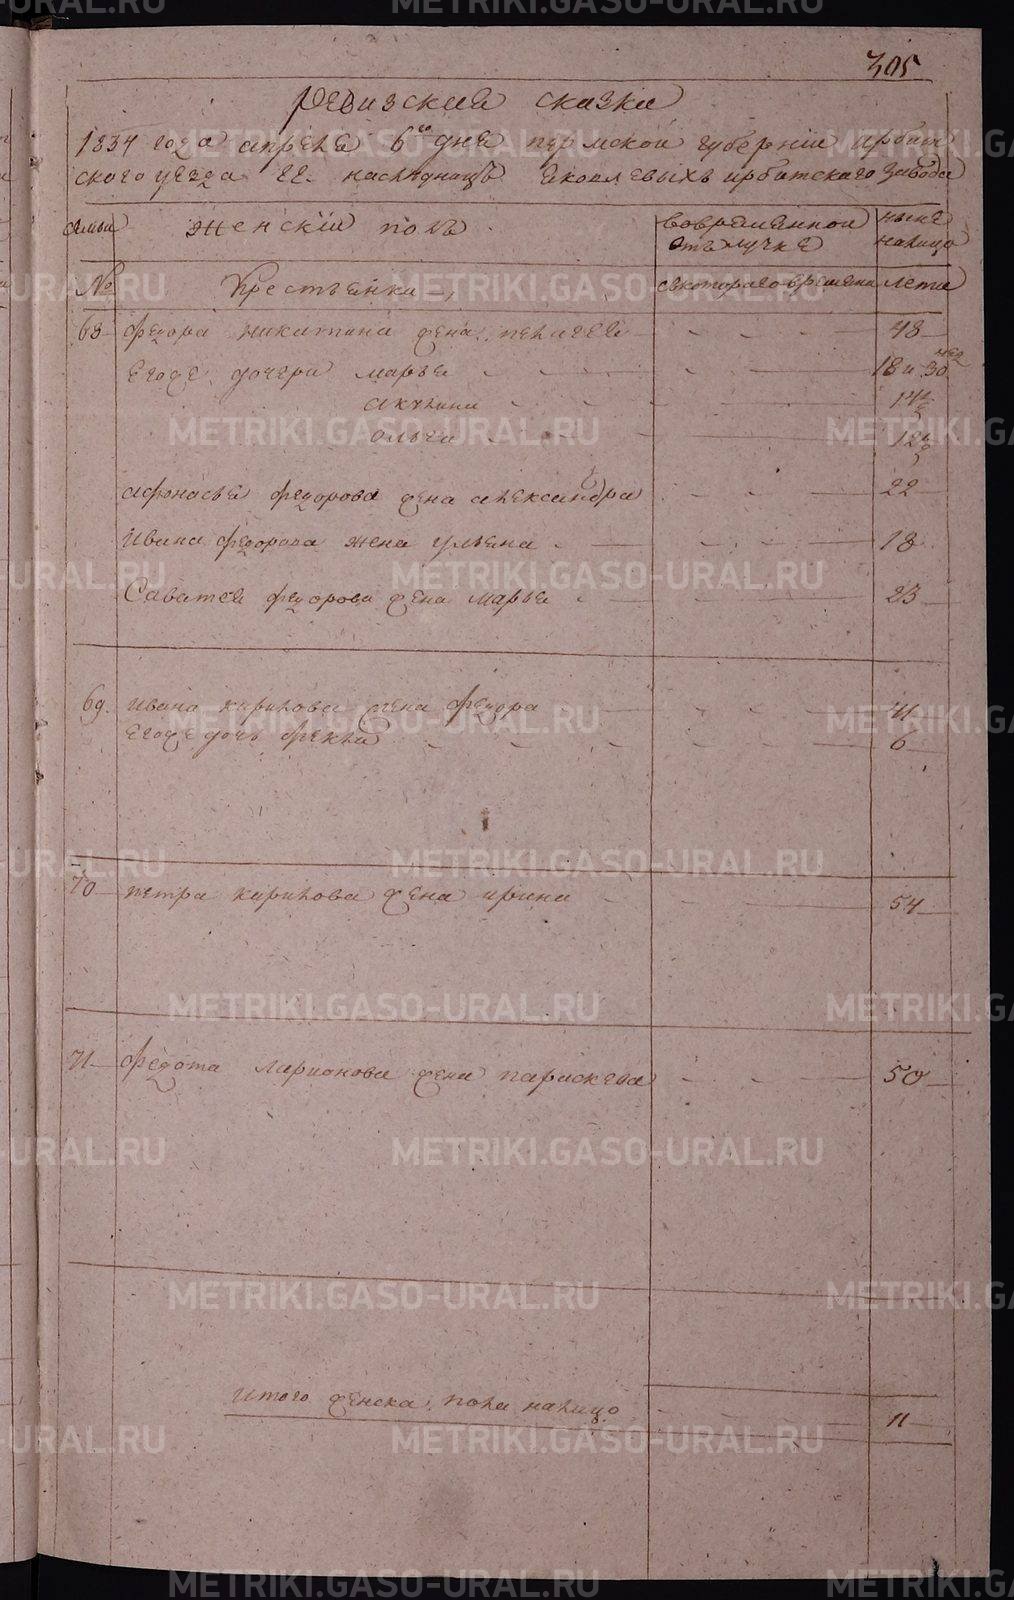 305
Ревизския сказки
1834 года апреля 6го дня пермской губернии ирбит
ского уезда гг. наследницъ яковлевыхъ ирбитскаго завода
семьи женскiй полъ вовремянной отлучке ныне налицо
№ Крестьянки скотораго времяни лета
68 федора никитина жена пелагея - - - 48
егоже дочери марья - - - 18 и 30 нед
акулина - - - 14½
ольга - - - 12½
афонасья федорова жена александра - - - 22
Ивана федорова жена ульяна - - - 18
Саватея федорова жена марья - - - 23
69. ивана кирилова жена федора - - - 41
егоже дочь фекла - - - 6
70 петра кирилова жена ирина - - - 54
71 федота ларионова жена параскева - - - 50
итого женска пола налицо - - - 11
METRIKI.GASO-URAL.RU